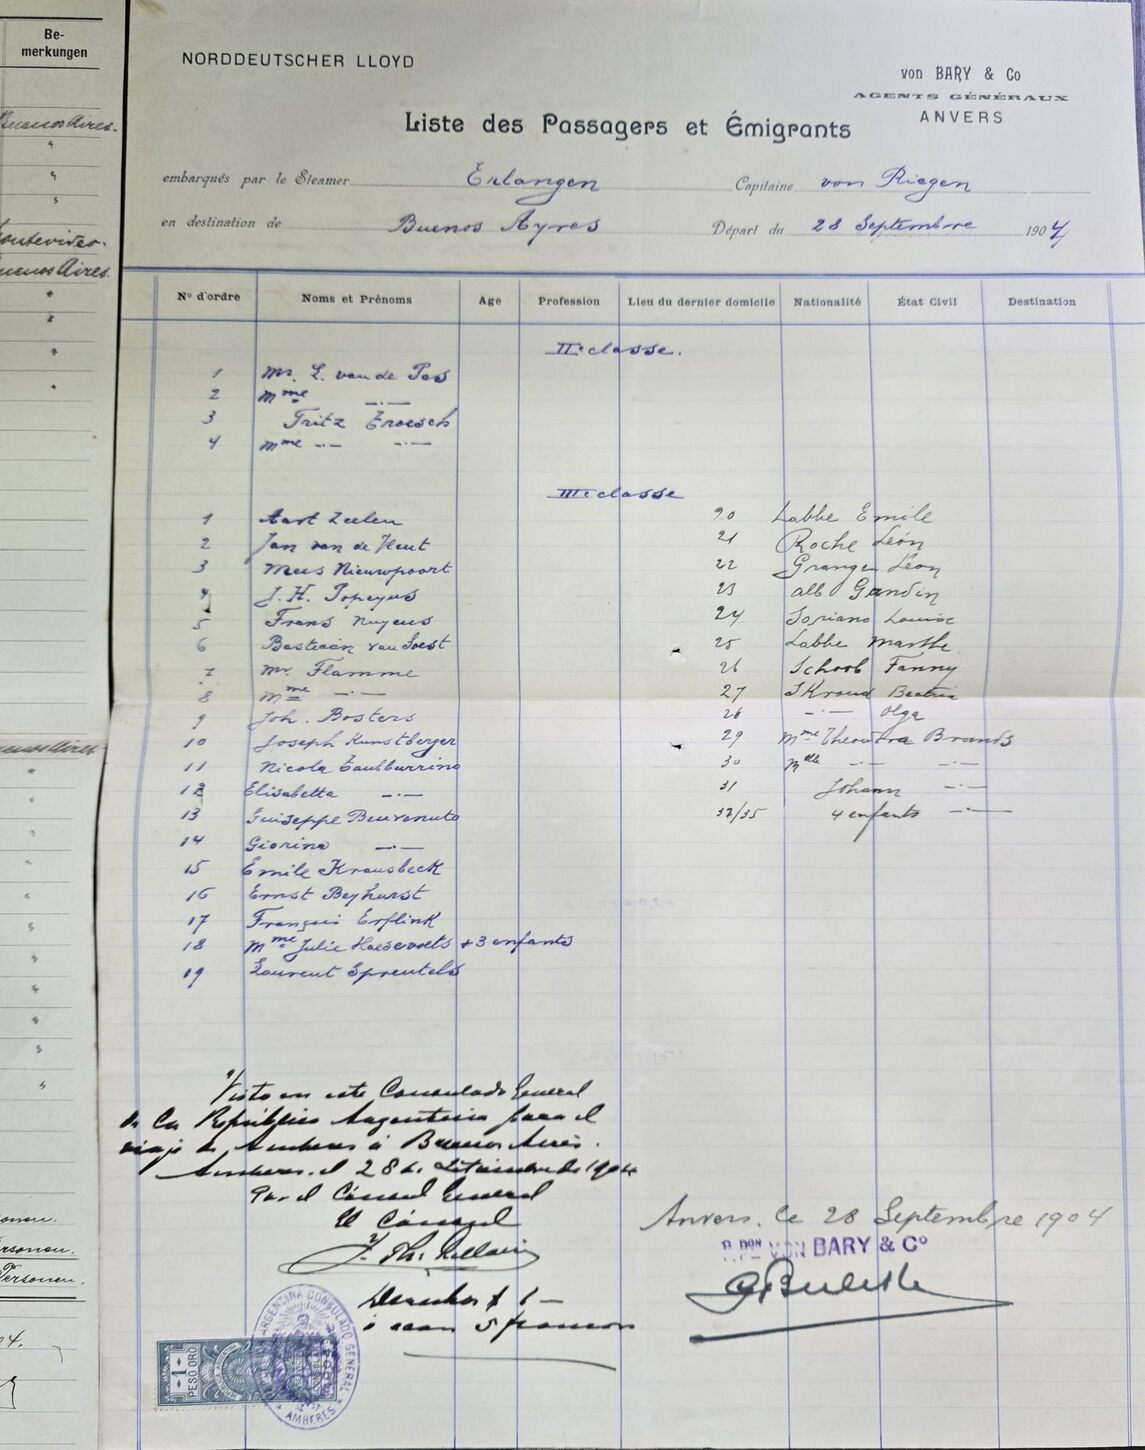 Be-
merkungen
Buenos Aires.
Montevideo.
Buenos Aires.
Buenos Aires
Personen.
Personen.
Personen.
NORDDEUTSCHER LLOYD
von BARY & Co
AGENTS GÉNÉRAUX
ANVERS
Liste des Passagers et Émigrants
embarqués par le Steamer Erlangen Capitaine von Riegen
en destination de Buenos Ayres Départ du 28 Septembre 1904
N° d'ordre Noms et Prénoms Age Profession Lieu du dernier domicile Nationalité État Civil Destination
II classe.
1 Mr. L. van de Pas
2 Mme —·—
3 Fritz Troesch
4 Mme —·— —·—
III classe
1 Aart Zeelen 20 Labbe Emile
2 Jan van de Heut 21 Roche Léon
3 Mees Nieuwpoort 22 Granger Léon
4 J. H. Popeyus 23 Alb Gandin
5 Frans Nuyens 24 Soriano Louise
6 Bastiaan van Soest 25 Labbe Marthe
7 Mr. Flamme 26 Schoob Fanny
8 Mme —·— 27 Beatrix
9 Joh. Bosters 28 —·— Olga
10 Joseph Kunstberger 29 Mme Theodora Brands
11 Nicola 30 Mlle —·— —·—
12 Elisabetta —·— 31 Johann —·—
13 Guiseppe Benvenuto 32/35 4 enfants —·—
14 Giorina —·—
15 Emile Krausbeck
16 Ernst Beyhurst
17 François Erflink
18 Mme Julie Haesevoets + 3 enfants
19 Laurent Spreutels
Visto en este Consulado General
de la República Argentina para el
viaje de Amberes á Buenos Aires.
Amberes, el 28 de Setiembre de 1904
Por el Cónsul General
El Cónsul
Derechos $ 1—
ó sean 5 francos
Anvers, le 28 Septembre 1904
P. PON VON BARY & Co
1 PESO ORO
ARGENTINA CONSULADO GENERAL
AMBERES